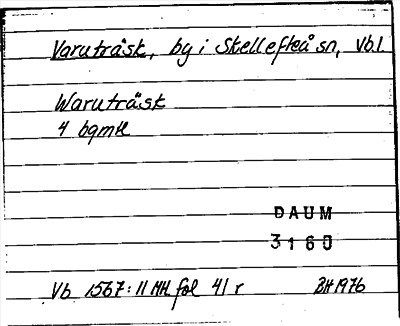 Varuträsk, by i Skellefteå sn, Vb.
Waruträsk
4 bqmk
DAUM
3160
Vb 1567:11 MH fol 41 r BH 1976